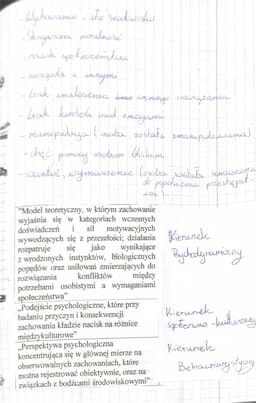 - Wychowanie, złe środowisko
- Skrzywiona moralność
- nacisk społeczeństwa
- niezgoda z innymi
- brak znalezienia innego rozwiązania
- brak kontroli nad emocjami
- manipulacja (osoba została zmanipulowana)
- chęć pomocy osobom bliskim
- szantaż, wymuszenie (osoba została zmuszona
do popełnienia
"Model teoretyczny, w którym zachowanie
wyjaśnia się w kategoriach wczesnych
doświadczeń i sił motywacyjnych
wywodzących się z przeszłości; działania
rozpatruje się jako wynikające
z wrodzonych instynktów, biologicznych
popędów oraz usiłowań zmierzających do
rozwiązania konfliktów między
potrzebami osobistymi a wymaganiami
społeczeństwa"
Kierunek
Psychodynamiczny
„Podejście psychologiczne, które przy
badaniu przyczyn i konsekwencji
zachowania kładzie nacisk na różnice
międzykulturowe"
Kierunek
społeczno-kulturowy
„Perspektywa psychologiczna
koncentrująca się w głównej mierze na
obserwowalnych zachowaniach, które
można rejestrować obiektywnie, oraz na
związkach z bodźcami środowiskowymi"
Kierunek
Behawiorystyczny